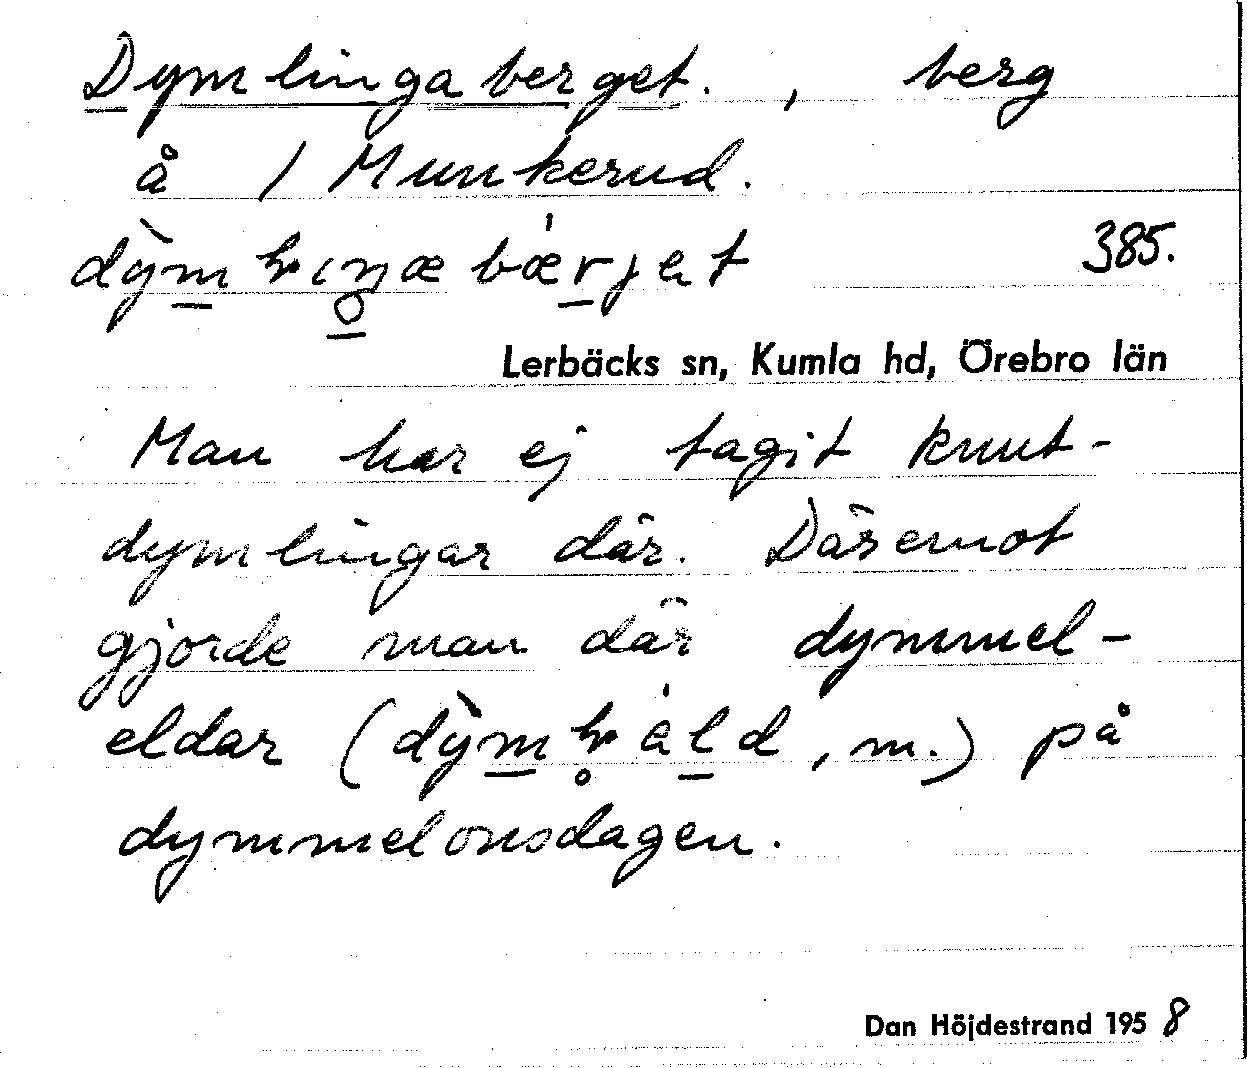 Dymlingaberget. , berg
å 1 Munkerud.
385.
Lerbäcks sn, Kumla hd, Örebro län
Man har ej tagit knut-
dymlingar där. Däremot
gjorde man där dymmel-
eldar ( , m.) på
dymmelonsdagen.
Dan Höjdestrand 1958